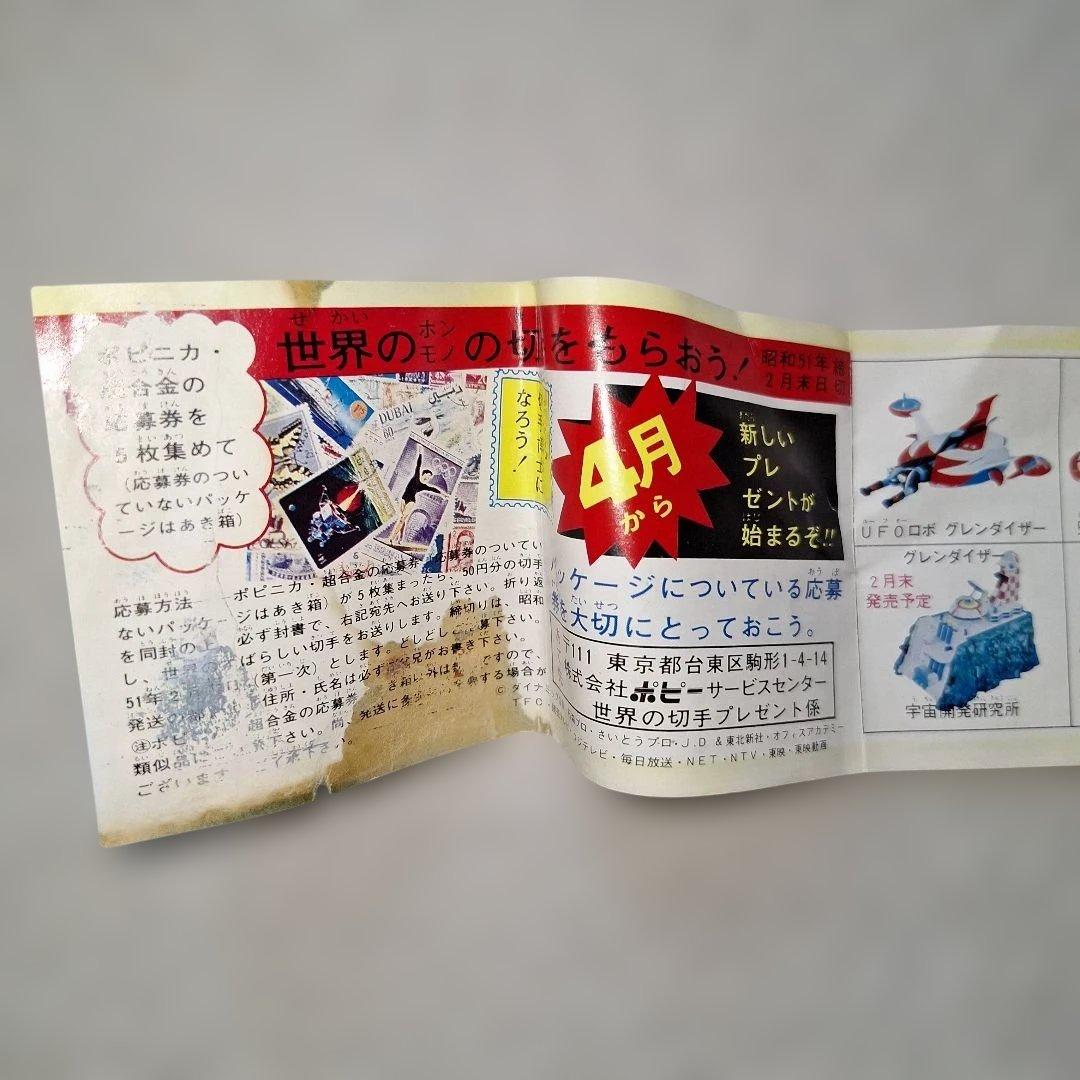 世界のホンモノの切をもらおう!
昭和51年
2月末日
ポピニカ・
合金の
応募券を
5枚集めて
(応募券のつい
ていないパッケ
ージはあき箱)
DUBAI
60
なろう!
4月
から
新しい
プレ
ゼントが
始まるぞ!!
ッケージについている応募
を大切にとっておこう。
〒111 東京都台東区駒形1-4-14
株式会社ポピーサービスセンター
世界の切手プレゼント係
応募方法 ポピニカ・超合金の応募券 応募券のついてい
ないパッケ ジはあき箱)が5枚集まったら、50円分の切手
を同封の上 必ず封書で、右記宛先へお送り下さい。折り返
し、世 ばらしい切手をお送りします。締切りは、昭和
51年2 (第一次)とします。どしどし 募下さい。
発送の 住所・氏名は必ず 兄がお書き下さい。
㊟ポピ 合金の応募券 き箱以外は ですので、
類似品に 下さい。尚、発送に 要する場合が
ございます
©ダイナミ
TFC
プロ・さいとうプロ・J.D &東北新社・オフィスアカデミー
テレビ・毎日放送・NET・NTV・東映・東映動画
UFOロボ グレンダイザー
グレンダイザー
2月末
発売予定
宇宙開発研究所